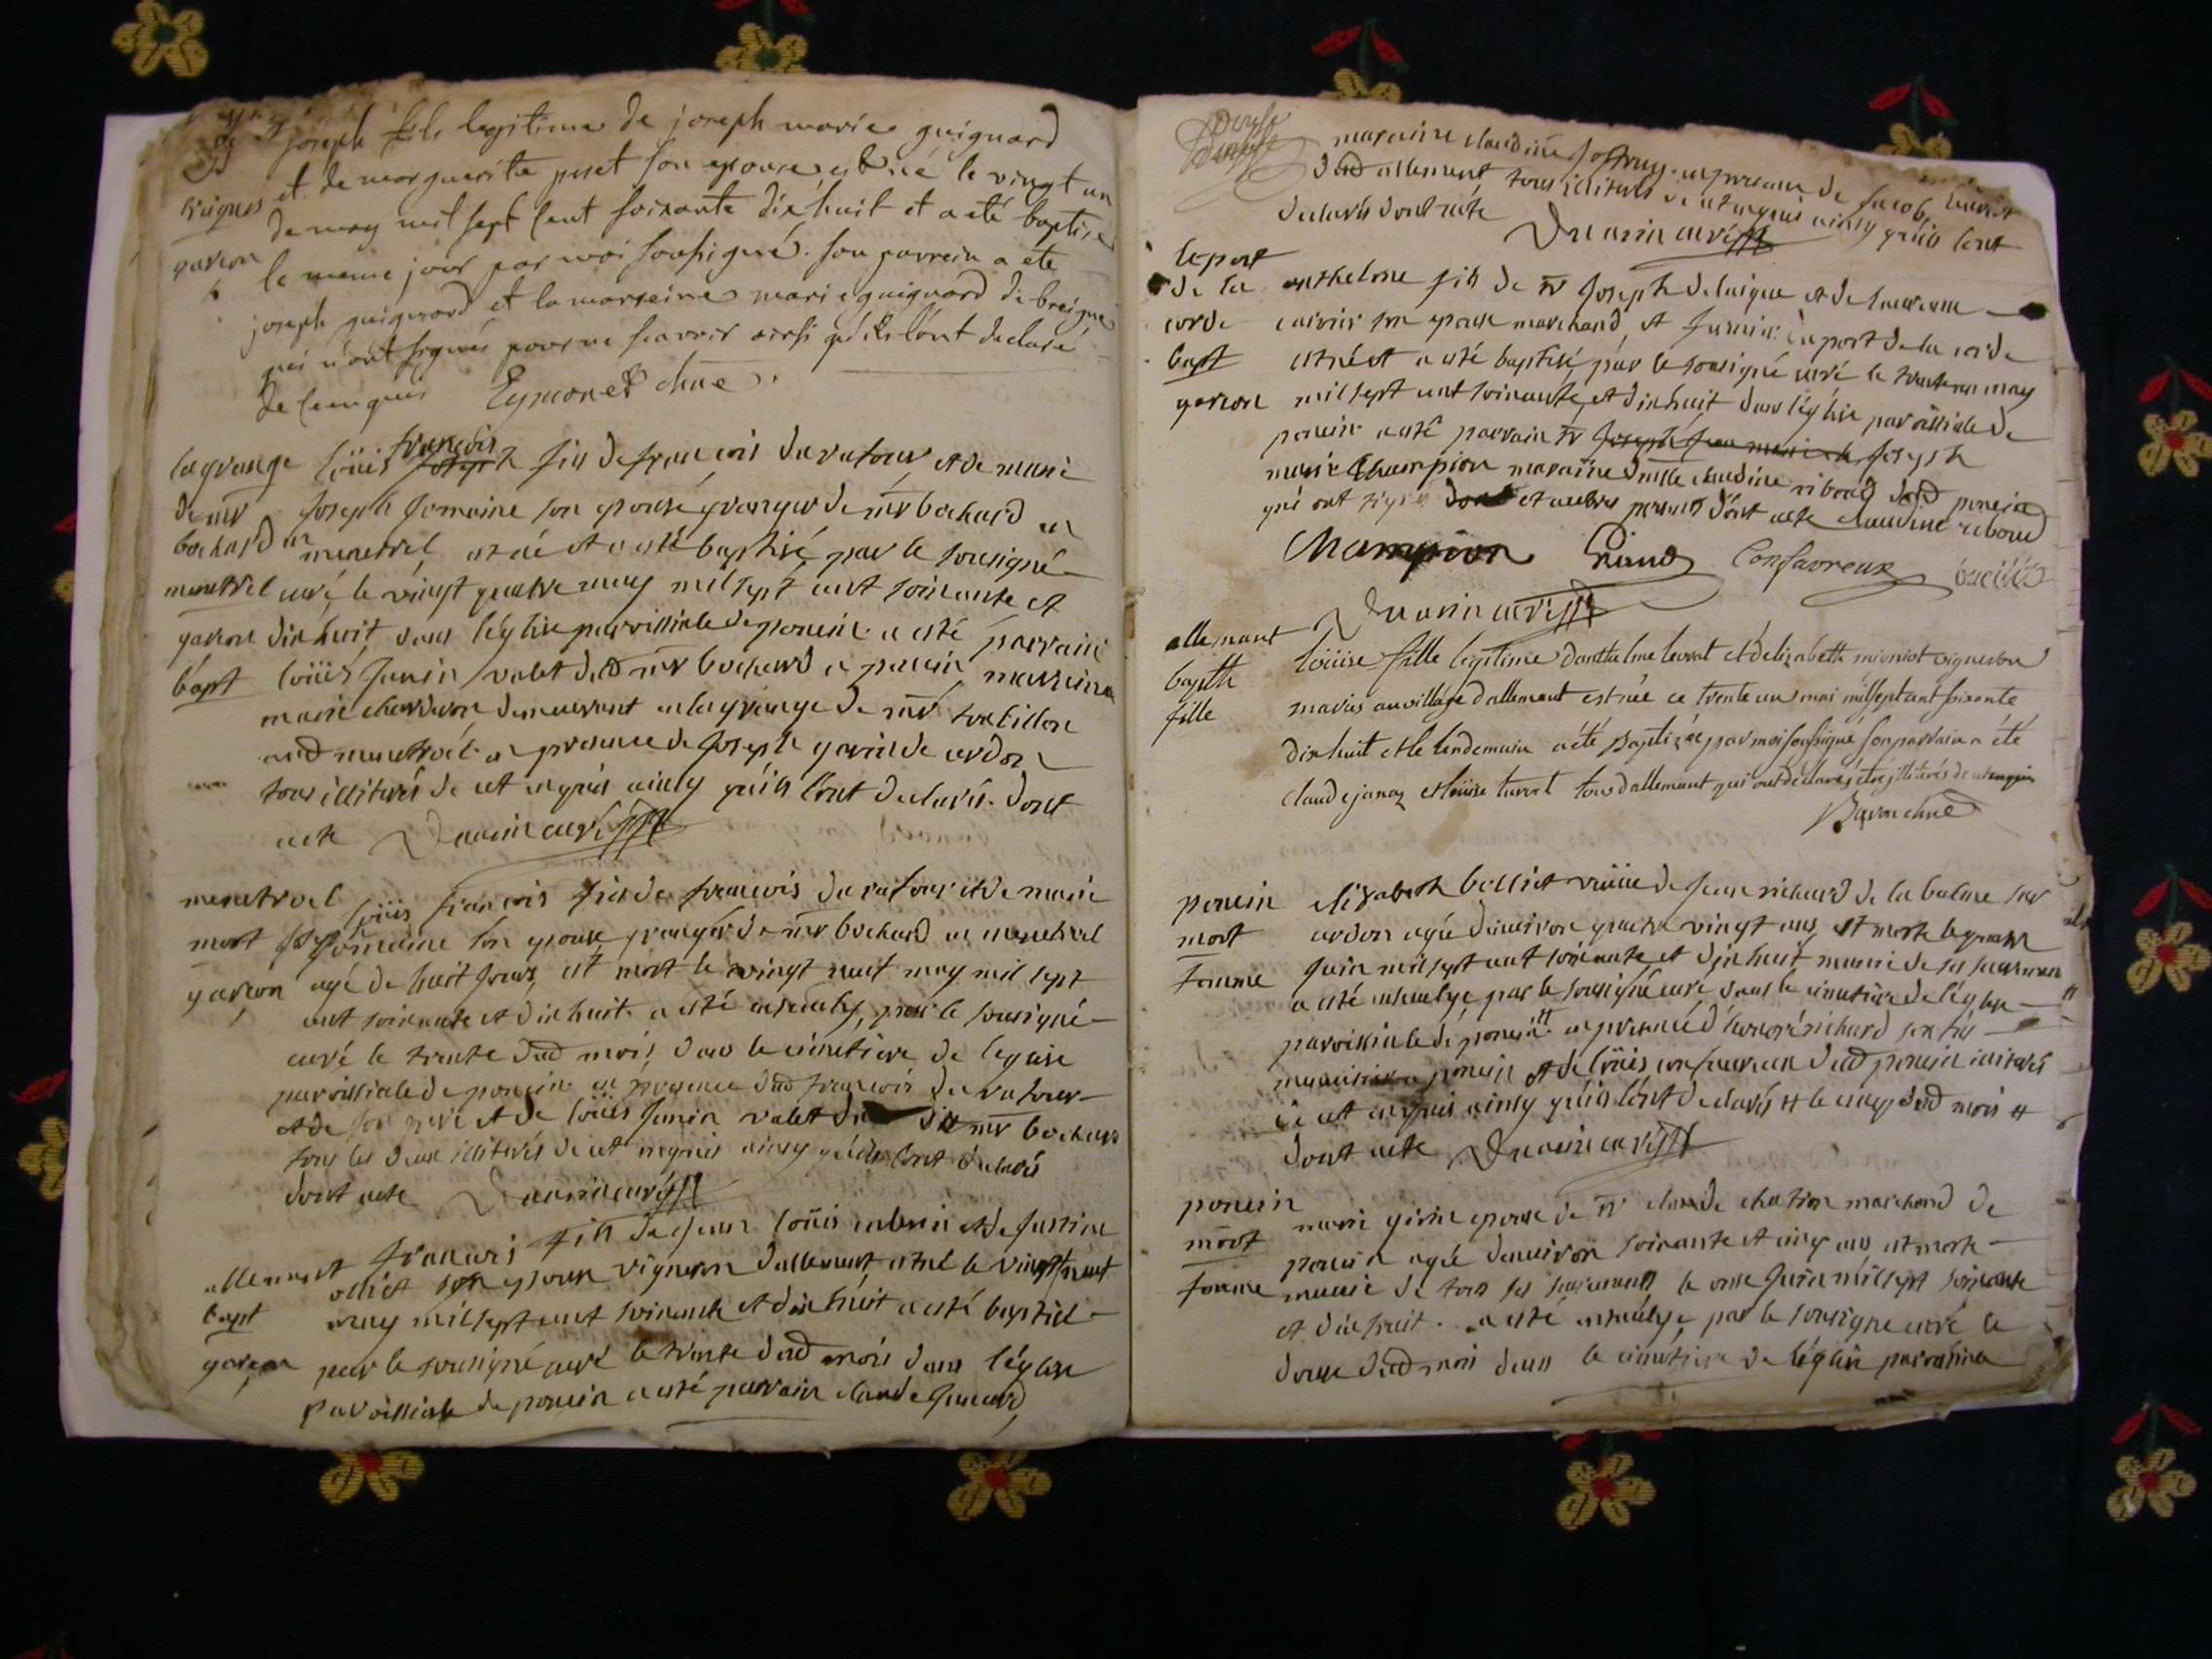 joseph fils legitime de joseph marie guignard
et de marguerite puset son epouse est né le vingt un
de may mil sept cent soixante dix huit et a eté baptisé
garcon
le meme jour par moi soussigné. son parrein a ete
joseph guignard et la marreine marie guignard de breignes
qui n'ont signés pour ne scavoir ainsi qu'ils l'ont declaré
de ce enquis Eymonet
lagrange loüis françois fils de françois duratour et de marie
de mr joseph jomaine son epouse granger de mr bochard en
bochard en menetruel, est né et a esté baptisé par le sousigné
menetruel curé, le vingt quatre may mil sept cent soixante et
garcon dix huit, dans l'église parroissiale de poncin a esté parrain
bapt loüis janin valet dud mr bochard a poncin marraine
marie demeurant en la grange de mr
aud menetruel en presence de joseph garin de cerdon
tous illiterés de ce enquis ainsy qu'ils l'ont declaré. dont
acte curé
menetruel loüis françois fils de françois duratour et de marie
mort joseph jomaine son epouse, granger de mr bochard en menetruel
garcon agé de huit jours, est mort le vingt neuf may mil sept
cent soixante et dix huit. a esté ensevely, par le sousigné
curé le trente dud mois, dans le cimetiere de l'eglise
parroissiale de poncin en presence dud françois duratour
et de son pere et de loüis janin valet dud mr bochard
tous les deux illiterés de ce enquis ainsy qu'ils l'ont declarés
dont acte curé
allement françois fils de jean loüis et de justine
son epouse vigneron d'allement est né le vingt neuf
bapt may mil sept cent soixante et dix huit a esté baptisé
garcon par le sousigné curé le trente dud mois dans l'église
parroissiale de poncin a esté parrain claude
maraine claudine en presence de jacob
dud allement tous illiterés de ce enquis ainsy qu'ils l'ont
declarés dont acte curé
le port
de la anthelme fils de sr joseph delaigue et de
corde son epouse marchand, et du port de la corde
bapt est né et a esté baptisé par le sousigné curé le trente un may
garcon mil sept cent soixante et dix huit dans l'église parroissiale de
poncin a esté parrain sr joseph jean marie joseph
marie Champion maraine dmlle claudine riboud dud poncin
qui ont signé et autres presents dont acte claudine riboud
Champion Confavreux
curé
allement
bapth loüise fille legitime d'anthelme levrat et d'elizabeth vigneron
fille mariés au village d'allement est née ce trente un mai mil sept cent soixante
dix huit et le lendemain a été baptizée par moi soussigné son parrain a été
claude janaz et loüise tous d'allement qui ont declarés être illiterés de ce enquis
poncin elizabeth veüve de jean richard de la balme sur
mort cerdon agée d'environ quatre vingt ans, est morte le quatre
femme juin mil sept cent soixante et dix huit munie de ses sacremens
a esté ensevelye par le sousigné curé dans le cimetiere de l'église
parroissiale de poncin en presence d'honoré richard son fils
poncin et de loüis confavreux dud poncin illiterés
de ce enquis ainsy qu'ils l'ont declarés # le cinq dud mois #
dont acte curé
poncin
mort marie epouse de sr claude marchand de
femme poncin agée d'environ soixante et cinq ans est morte
munie de tous ses sacremens le onze juin mil sept soixante
et dix huit. a esté ensevelye par le sousigné curé le
douze dud mois dans le cimetiere de l'église parroissiale